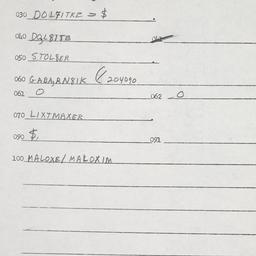 030 DOLFITKE = $
040 DOLSITE
050 STOLSER
060 GARAJANSIK ( 204090
061 0 062 0
070 LIXTMAXER
090 $, 091
100 MALOXE/MALOXIM